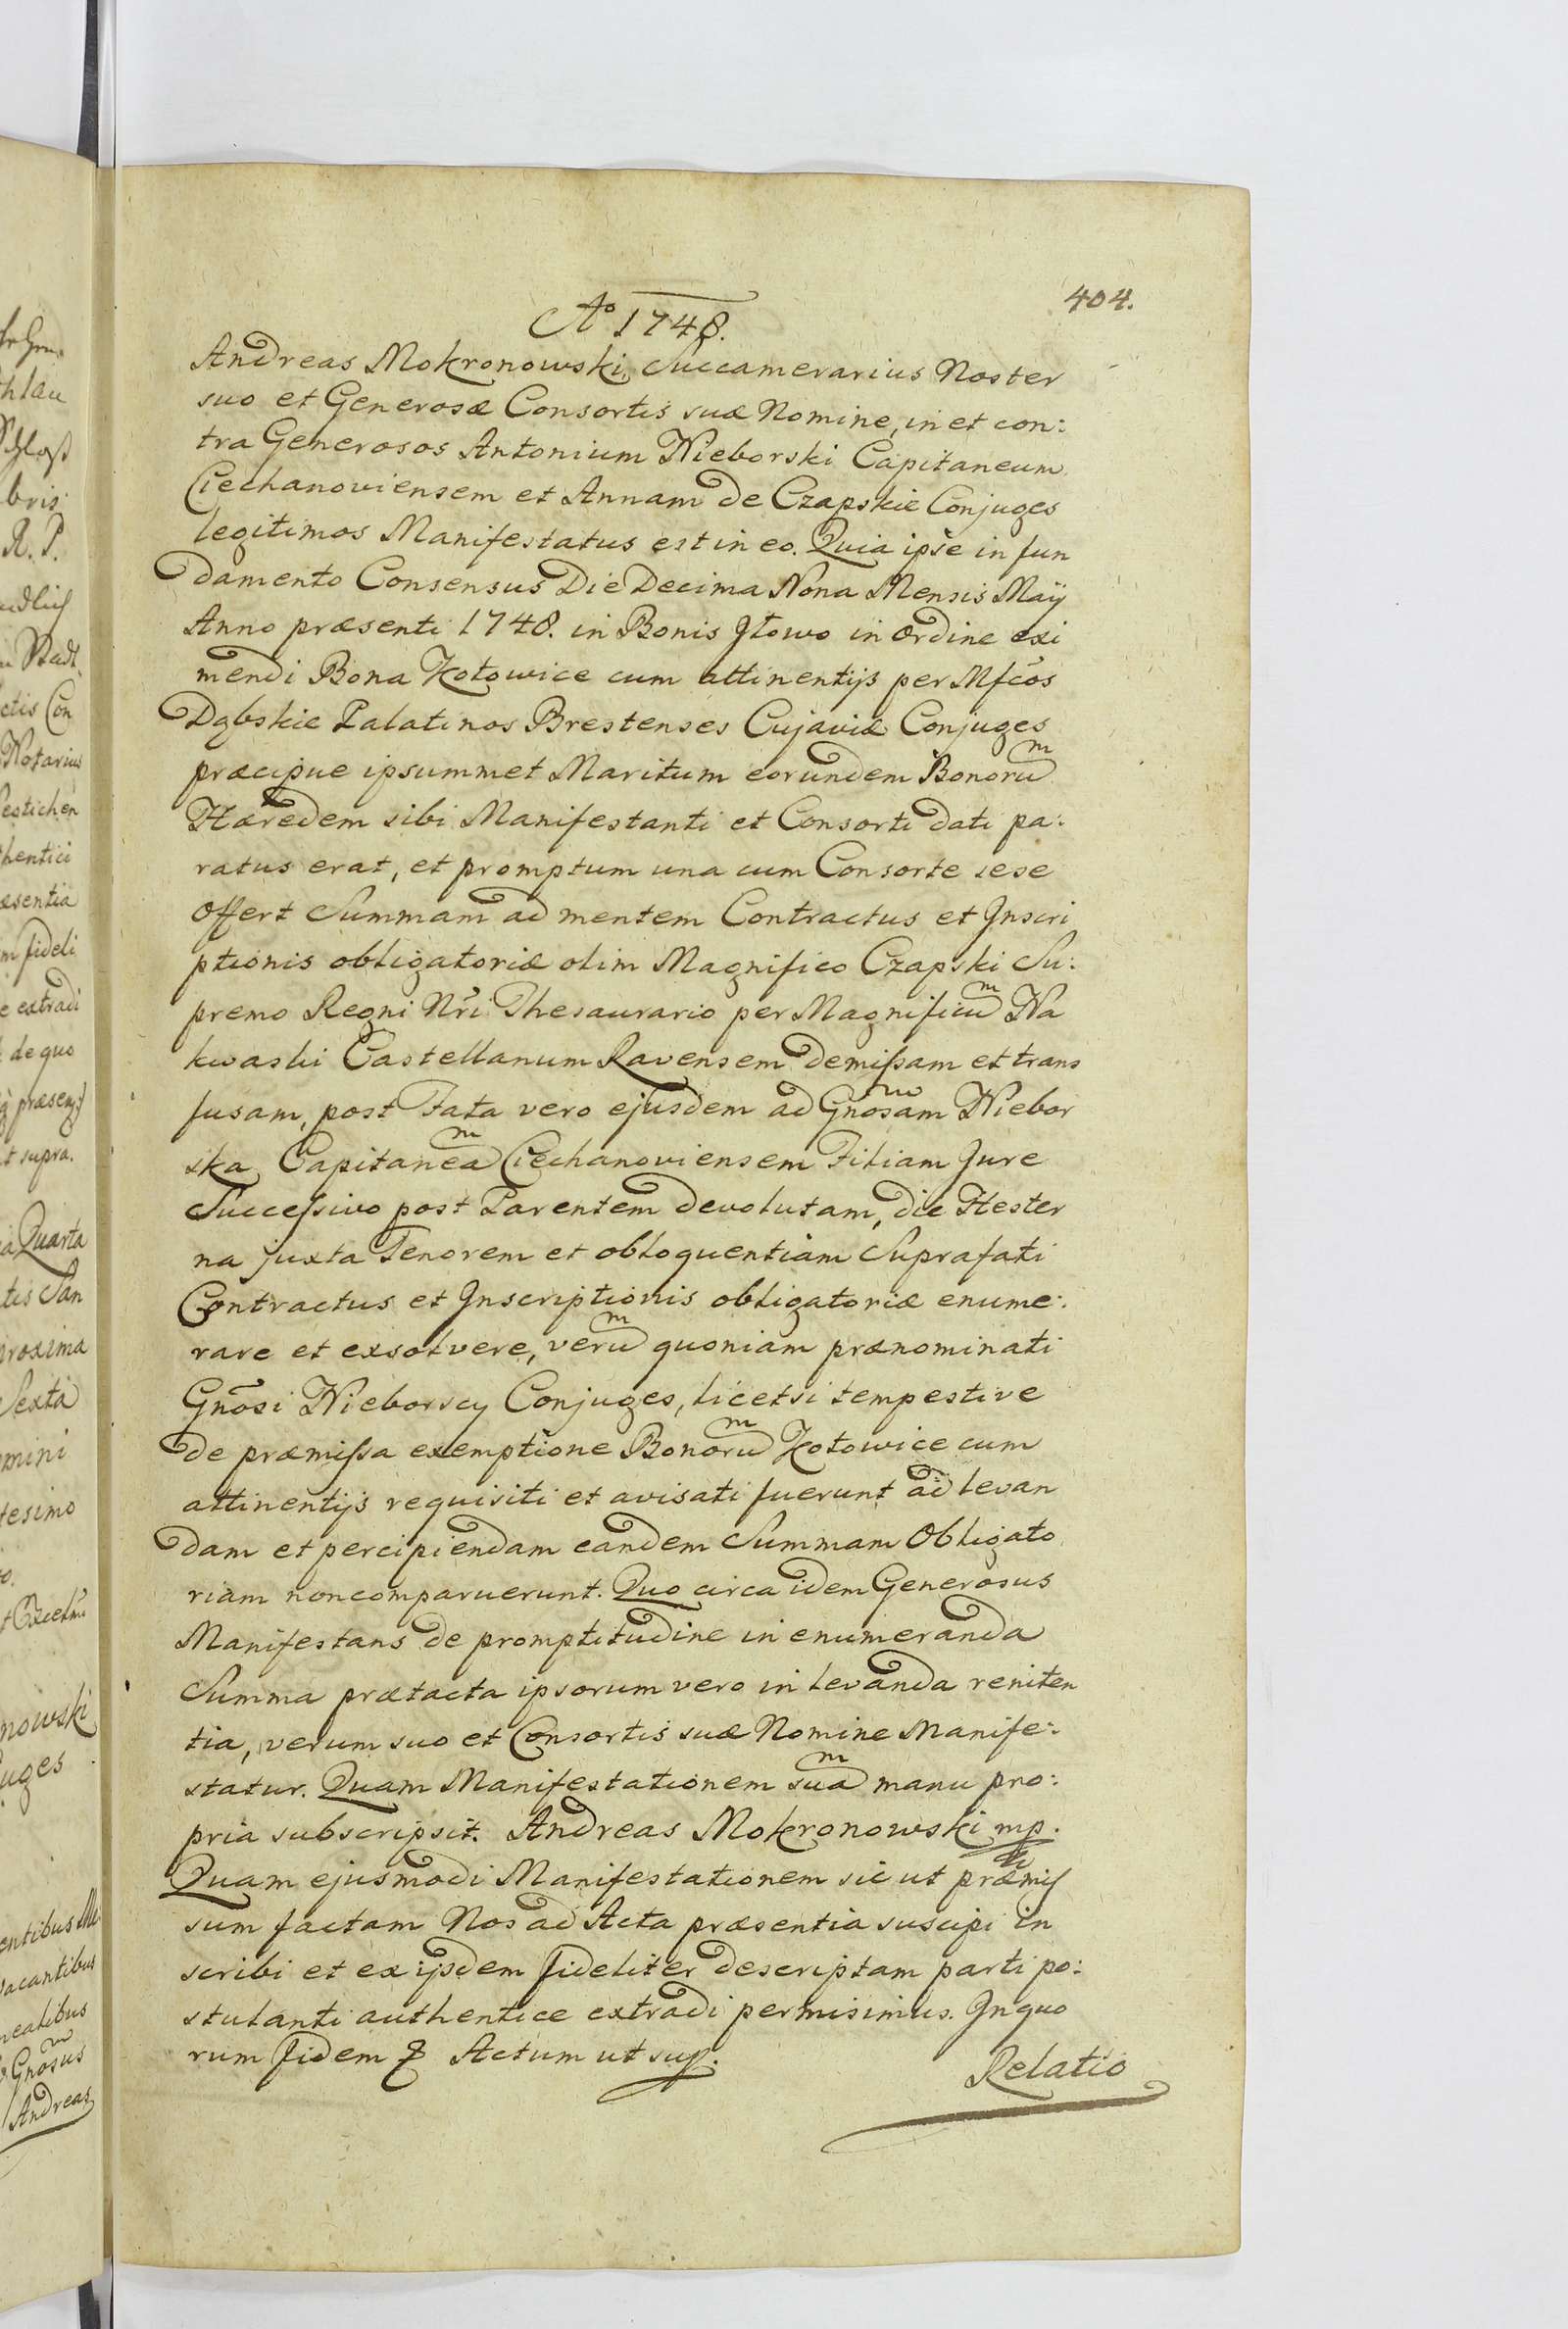 404.
Ao 1748.
Andreas Mokronowski Succamerarius Noster
suo et Generosæ Consortis suæ Nomine, in et con:
tra Generosos Antonium Nieborski Capitaneum
Ciechanoviensem et Annam de Czapskie Conjuges
legitimos Manifestatus est in eo. Quia ipse in fun
damento Consensus Die Decima Nona Mensis Maÿ
Anno præsenti 1748. in Bonis Jłowo in ordine exi
mendi Bona Kotowice cum attinentijs per Mfcos
Dąbskie Palatinos Brestenses Cujaviæ Conjuges
præcipue ipsummet Maritum eorundem Bonorum
Hæredem sibi Manifestanti et Consorti dati pa:
ratus erat, et promptum una cum Consorte sese
offert Summam ad mentem Contractus et Inscri
ptionis obligatoriæ olim Magnifico Czapski Su:
premo Regni Nri Thesaurario per Magnificum Na
kwaski Castellanum Ravensem demissam et trans
fusam, post Fata vero ejusdem ad Gnosam Niebor
ska Capitaneam Ciechanoviensem Filiam Jure
Successivo post Parentem devolutam, die Hester
na juxta Tenorem et obloquentiam Suprafati
Contractus et Inscriptionis obligatoriæ enume:
rare et exsolvere, verum quoniam prænominati
Gnosi Nieborscy Conjuges, licetsi tempestive
de præmissa exemptione Bonorum Kotowice cum
attinentijs requisiti et avisati fuerunt ad levan
dam et percipiendam eandem Summam Obligato
riam noncomparuerunt. Quo circa idem Generosus
Manifestans de promptitudine in enumeranda
Summa prætacta ipsorum vero in levanda reniten
tia, verum suo et Consortis suæ Nomine Manife:
statur. Quam Manifestationem suam manu pro:
pria subscripsit. Andreas Mokronowski mp.
Quam ejusmodi Manifestationem sicut præmis
sum factam Nos ad Acta præsentia suscipi in
scribi et ex ijsdem fideliter descriptam parti po:
stulanti authentice extradi permisimus. In quo
rum fidem Actum ut sup.
Relatio